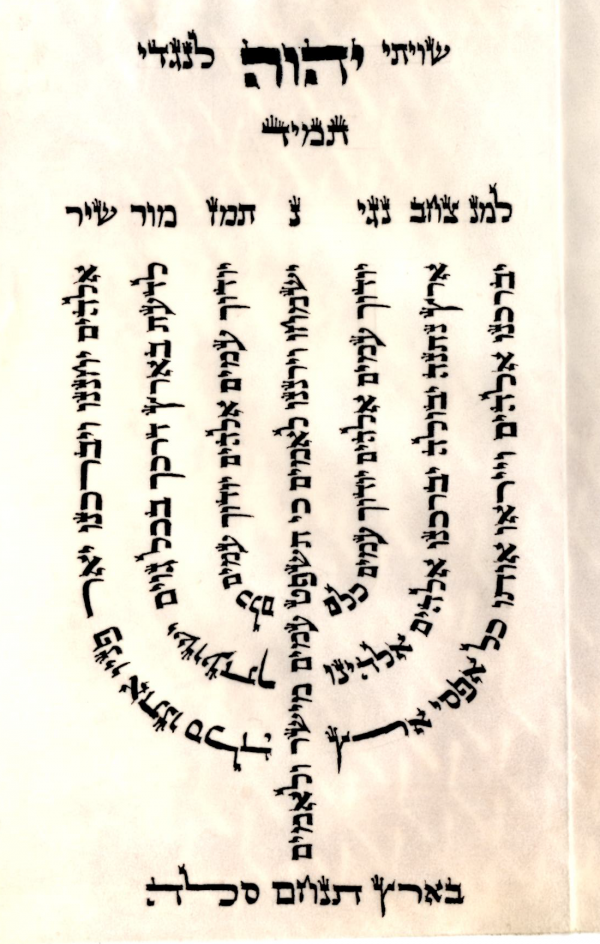 שויתי יהוה לנגדי
תמיד
למנ צחב נגי נ תמז מור שיר
אלהים יחננו ויברכנו יאר פניו אתנו סלה
לדעת בארץ דרכך בכל גוים ישועתך
יודוך עמים אלהים יודוך עמים כלם
ישמחו וירננו לאמים כי תשפט עמים מישר ולאמים
בארץ תנחם סלה
יודוך עמים אלהים יודוך עמים כלם
ארץ נתנה יבולה יברכנו אלהים אלהינו
יברכנו אלהים וייראו אותו כל אפסי ארץ